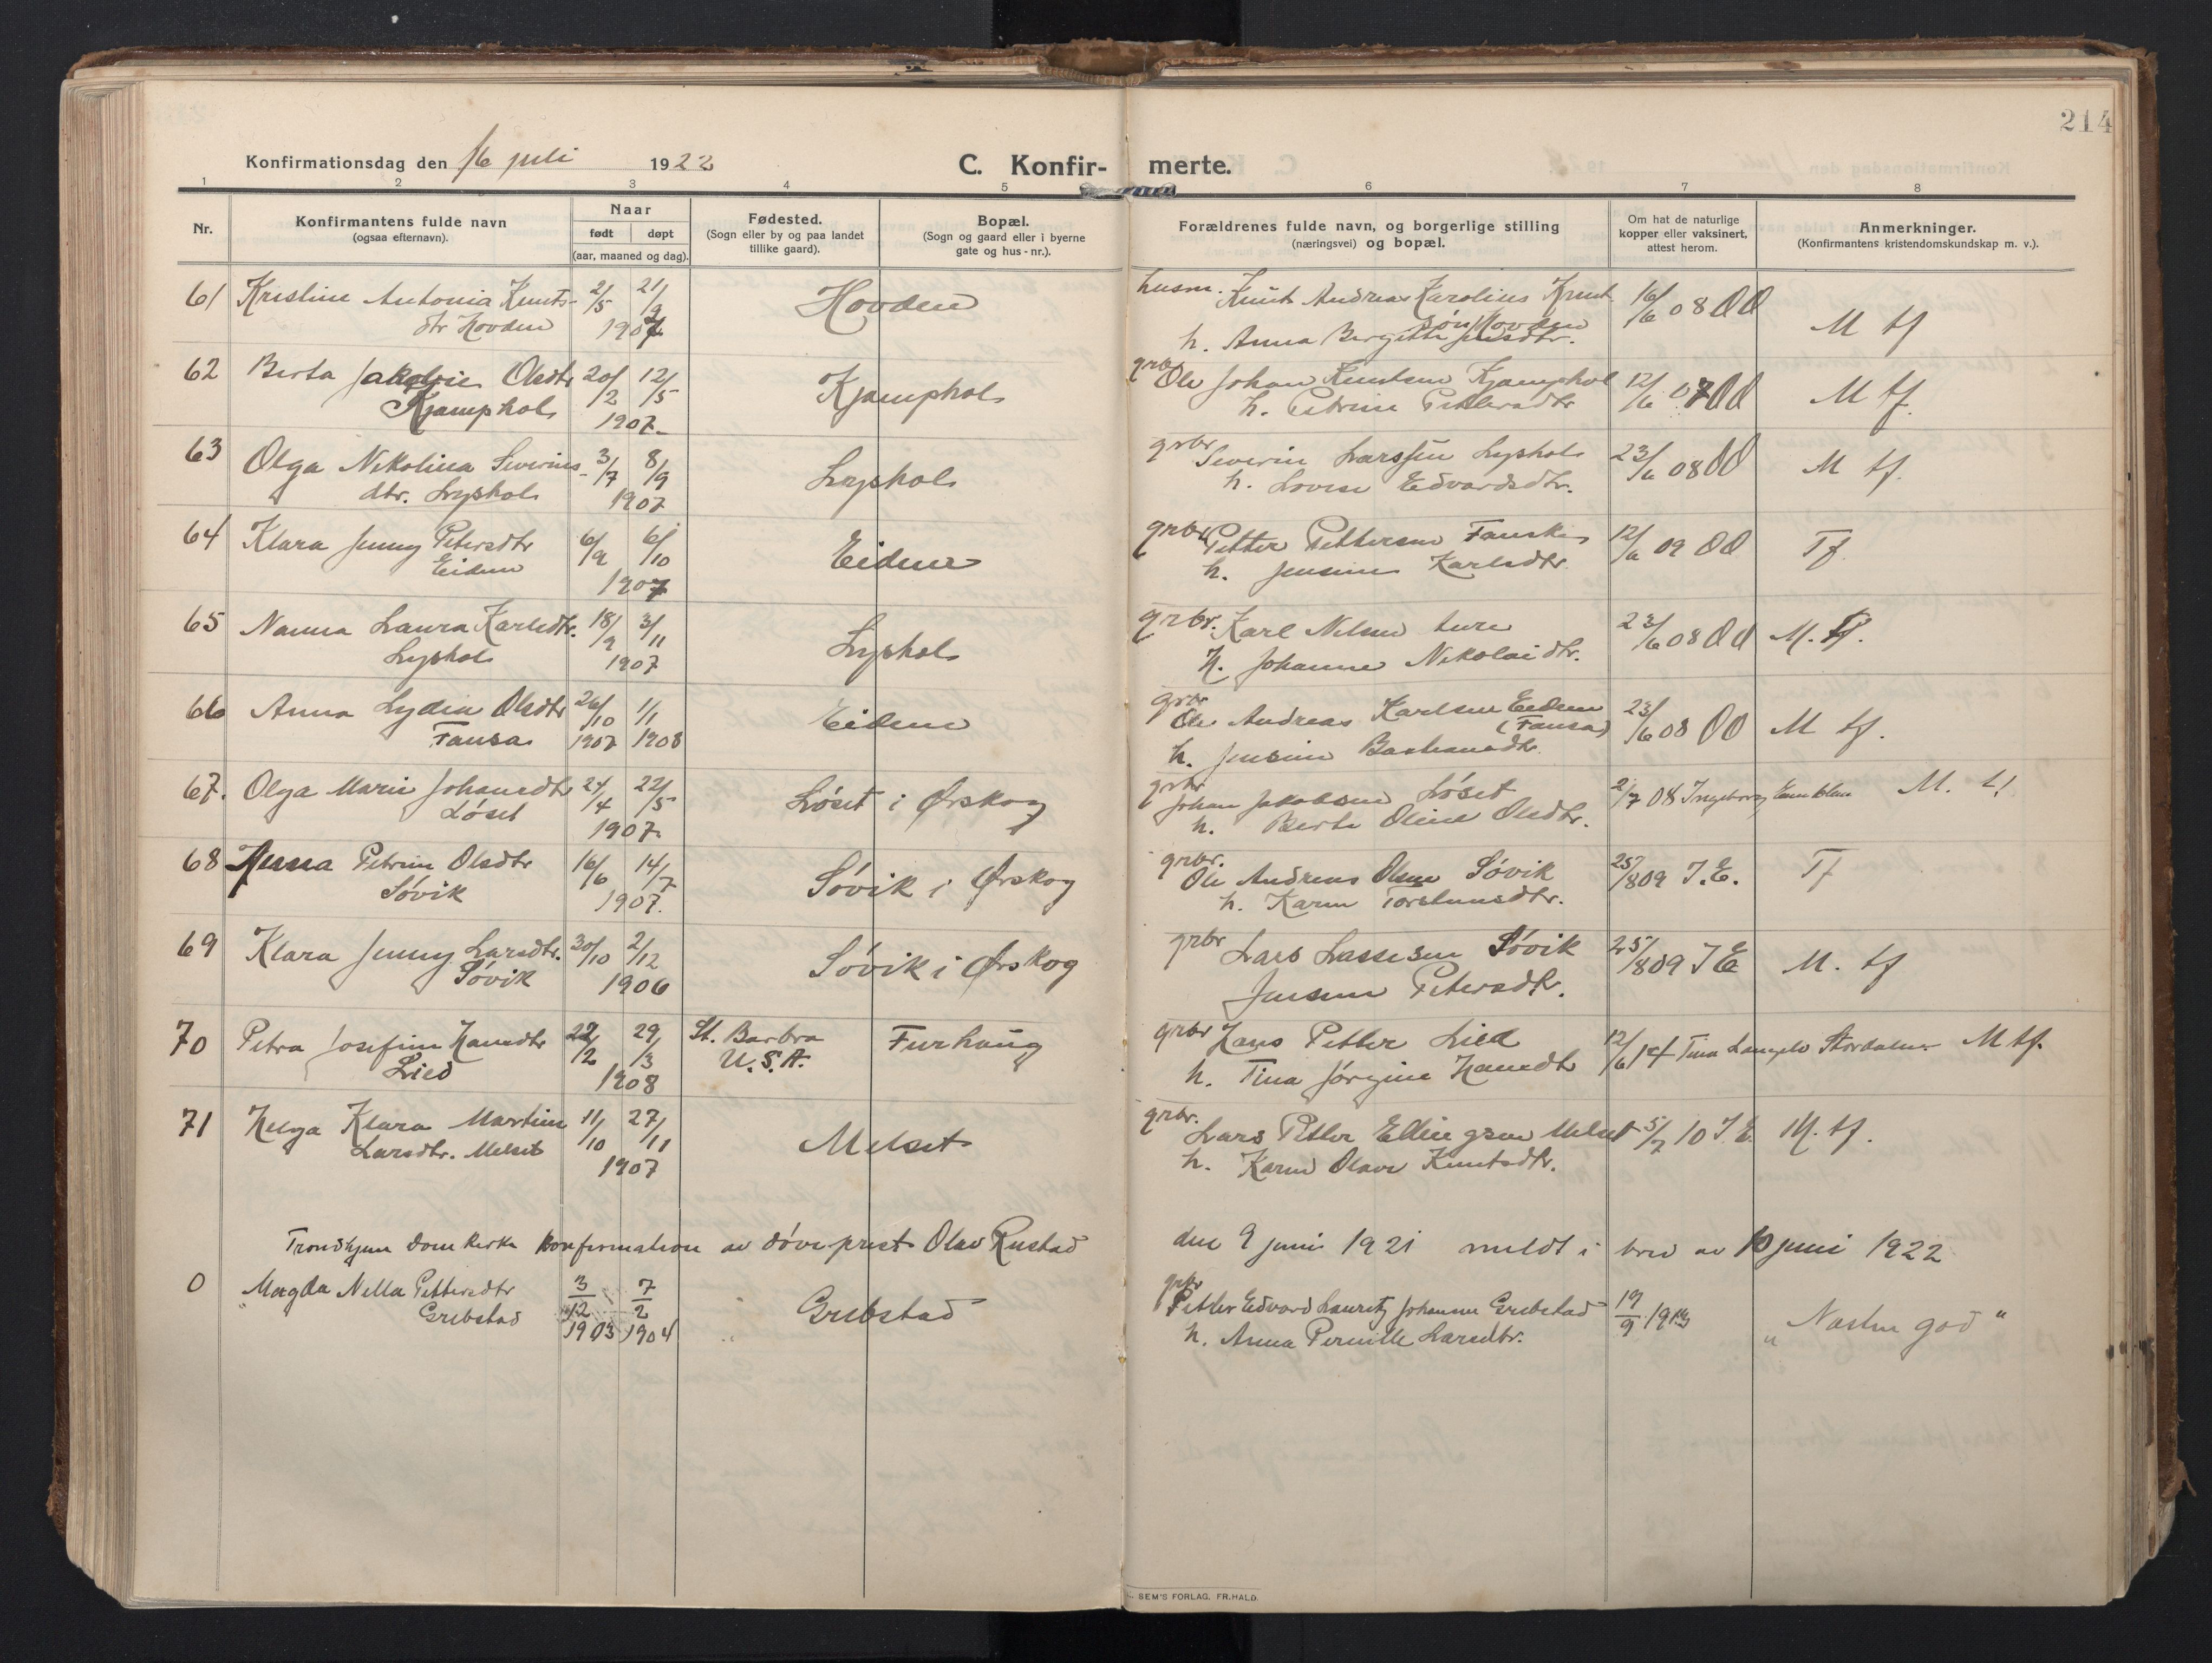 214
Konfirmationsdag den 16 juli 1922
C. Konfir-merte.
1 2 3 4 5 6 7 8
Nr.
Konfirmantens fulde navn
(ogsaa efternavn).
Naar
født døpt
(aar, maaned og dag).
Fødested.
(Sogn eller by og paa landet
tillike gaard).
Bopæl.
(Sogn og gaard eller i byerne
gate og hus-nr.).
Forældrenes fulde navn, og borgerlige stilling
(næringsvei) og bopæl.
Om hat de naturlige
kopper eller vaksinert,
attest herom.
Anmerkninger.
(Konfirmantens kristendomskundskap m. v.).
61 Kristine Antonia Knuts- 2/5 21/9 Hovden husm. Knut Andreas Karolius Knut 16/6 08 OO M tf
dtr Hovden 1907 søn Hovden
h. Anna Bergitte Jensdtr.
62 Berta Olsdtr 20/2 12/5 Kjamphol grbr Ole Johan Knutsen Kjamphol 12/6 07 OO M tf.
Kjamphol 1907 h. Petrine Pettersdtr
63 Olga Nikolina Severins- 3/7 8/9 Lyshol grbr Severin Larssen Lyshol 23/6 08 OO M tf.
dtr. Lyshol 1907 h. Lovise Edvardsdtr.
64 Klara Jenny Petersdtr 6/9 6/10 Eidem grbr Petter Pettersen Fauske 12/6 09 OO Tf.
Eidem 1907 h. Jensine Karlsdtr
65 Nanna Laura Karlsdtr. 18/9 3/11 Lyshol grbr. Karl Nilsen ture 23/6 08 OO M. tf.
Lyshol 1907 h. Johanne Nikolaidtr.
66 Anna Lydia Olsdtr 26/10 1/1 Eidem grbr Ole Andreas Karlsen Eidem 23/6 08 OO M tf.
Fausa 1907 1908 (Fausa)
h. Jensine Bastiansdtr.
67. Olga Marie Johansdtr 24/4 22/5 Løset i Ørskog grbr Johan Jakobsen Løset 2/7 08 Ingeborg Emblem M. t!
Løset 1907 h. Berte Oline Olsdtr.
68 Petrine Olsdtr 16/6 14/7 Søvik i Ørskog grbr. Ole Andreas Olsen Søvik 25/8 09 I.E. Tf
Søvik 1907. h. Karen Torstensdtr.
69 Klara Jenny Larsdtr. 30/10 2/12 Søvik i Ørskog grbr Lars Lassesen Søvik 25/8 09 I E M. tf
Søvik 1906 Jensine Petersdtr.
70 Petra Josefine Hansdtr 22/2 29/3 St. Barbra Furhaug grbr Hans Petter Lied 12/6 14 Tina Stordalen M tf.
Lied 1908 U.S.A. h. Tina Jørgine Hansdtr
71 Helga Klara Martine 11/10 27/11 Melset grbr. Lars Petter Ellingsen Melset 5/7 10 I.E. M. tf.
Larsdtr. Melset 1907 h. Karen Olave Knutsdtr.
Trondhjem Domkirke konfirmation av døveprest Olav Rustad den 9 juni 1921 meldt i brev av 10 juni 1922
0 Magda Nella Pettersdtr 3/12 7/2 Grebstad grbr Petter Edvard Lauritz Johansen Grebstad 19/9 19 „Næsten god“
Grebstad 1903 1904 h. Anna Pernille Larsdtr.
SEM'S FORLAG, FR.HALD